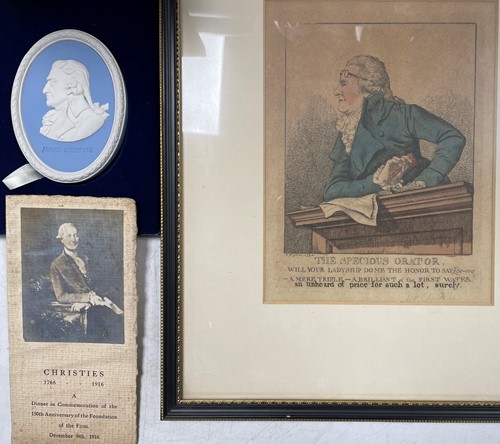 JAMES CHRISTIE
THE SPECIOUS ORATOR.
WILL YOUR LADYSHIP DO ME THE HONOR TO SAY
— A MERE TRIFLE — A BRILLIANT of the FIRST WATER.
an unheard of price for such a lot, surely.
CHRISTIES
1766 - 1916
A
Dinner in Commemoration of the
150th Anniversary of the Foundation
of the Firm
December 9th, 1916